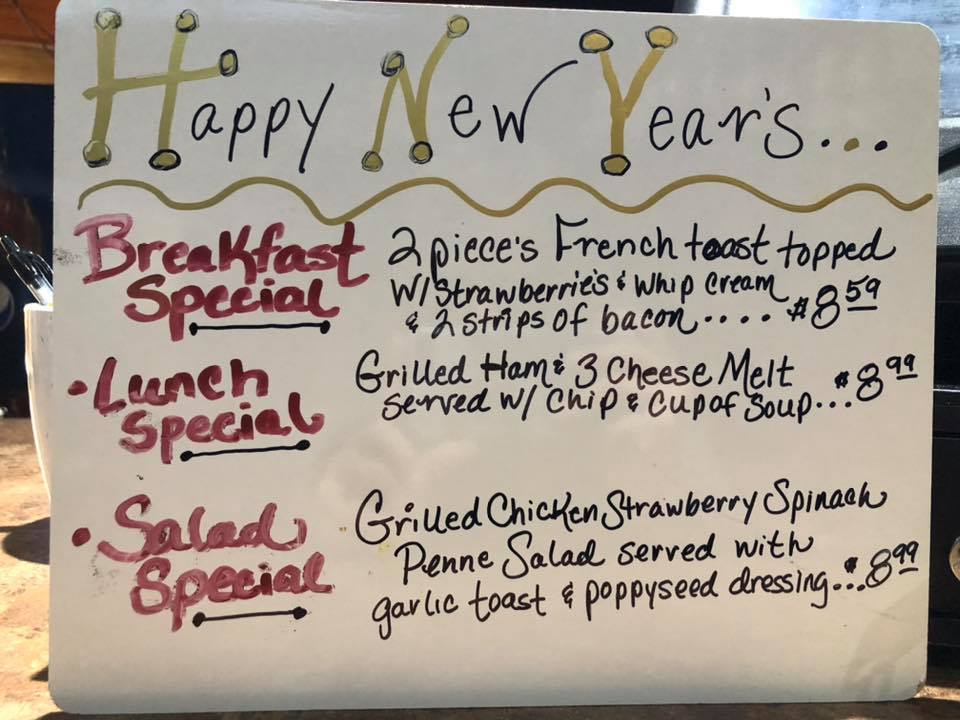 Happy New Year's...
Breakfast
Special
2 piece's French toast topped
w/ Strawberrie's & Whip cream
& 2 strips of bacon.... $8.59
• Lunch
Special
Grilled Ham & 3 Cheese Melt
served w/ Chip & Cup of Soup... $8.99
• Salad
Special
Grilled Chicken Strawberry Spinach
Penne Salad served with
garlic toast & poppyseed dressing... $8.99